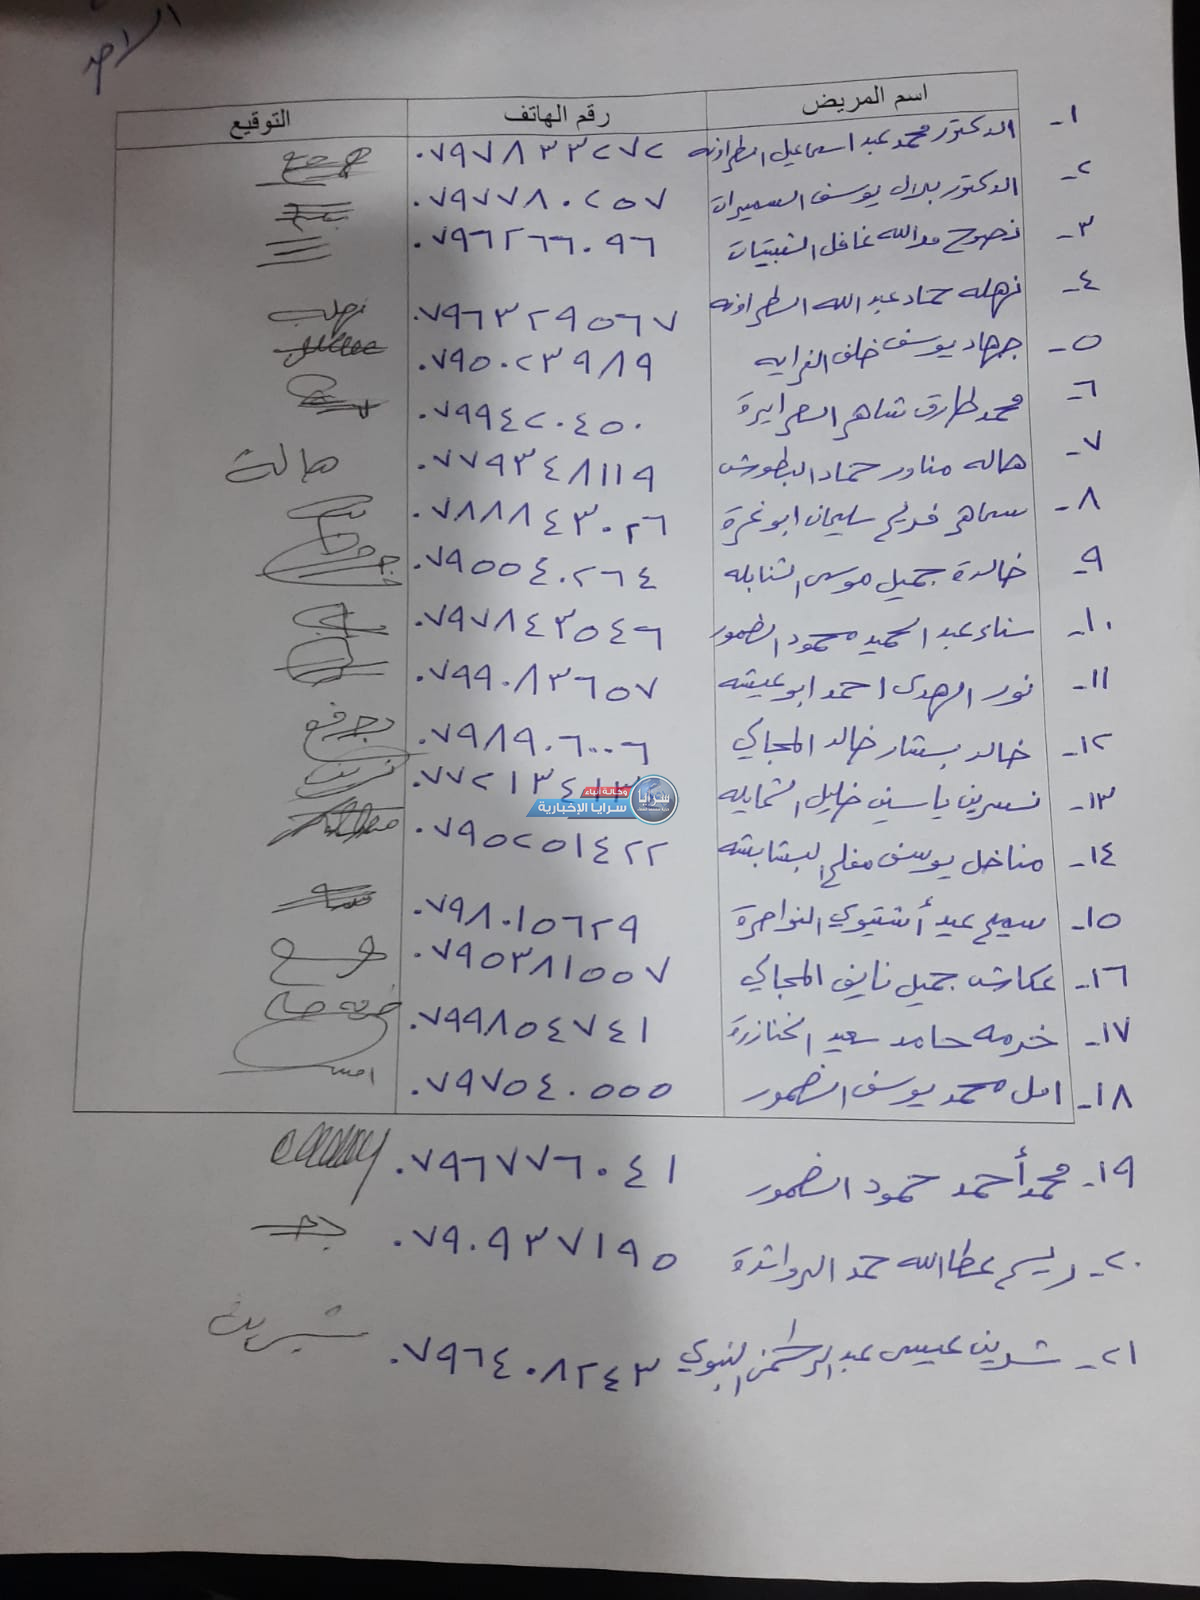 الاحد
اسم المريض رقم الهاتف التوقيع
١- الدكتور محمد عبد اسماعيل الطراونه ٠٧٩٧٨٣٣٢٧٢
٢- الدكتور بلال يوسف السميرات ٠٧٩٧٧٨٠٢٥٧
٣- نصوح مدالله غافل الشبيتات ٠٧٩٦٢٦٦٠٩٦
٤- نهله حماد عبد الله الطراونه ٠٧٩٦٣٢٩٥٦٧ نهله
٥- جهاد يوسف خلف الغرايه ٠٧٩٥٠٢٣٩٨٩
٦- محمد طارق شاهر الصرايرة ٠٧٩٩٤٢٠٤٥٠
٧- هاله مناور حماد البطوش ٠٧٧٩٣٤٨١١٩ هالة
٨- سماهر فريم سليمان ابوغرة ٠٧٨٨٨٤٣٠٢٦
٩- خالدة جميل موسى الشنابله ٠٧٩٥٥٤٠٢٦٤
١٠- سناء عبد الحميد محمود الضمور ٠٧٩٧٨٤٣٥٤٦
١١- نور الهدى احمد ابوعيشه ٠٧٩٩٠٨٣٦٥٧
١٢- خالد بشار خالد المجالي ٠٧٩٨٩٠٦٠٠٦
١٣- نسرين ياسين خليل الشمايله ٠٧٧٢١٣٤ نسرين
وكالة أنباء
سرايا الإخبارية
سرايا
١٤- مناخل يوسف مفلح البشابشه ٠٧٩٥٢٥١٤٢٢
١٥- سميح عيد أشتيوي النواصرة ٠٧٩٨٠١٥٦٢٩
١٦- عكاش جميل نايف المجالي ٠٧٩٥٣٨١٥٥٧
١٧- خزمه حامد سعيد الخنازرة ٠٧٩٩٨٥٤٧٤١
١٨- امل محمد يوسف الضمور ٠٧٩٧٥٤٠٥٥٥ امل
١٩- محمد أحمد حمود الضمور ٠٧٩٦٧٧٦٠٤١
٢٠- ريم عطاالله حمد الرواشدة ٠٧٩٠٩٣٧١٩٥
٢١- شيرين عيسى عبد الرحمن النبوي ٠٧٩٦٤٠٨٢٤٣ شيرين